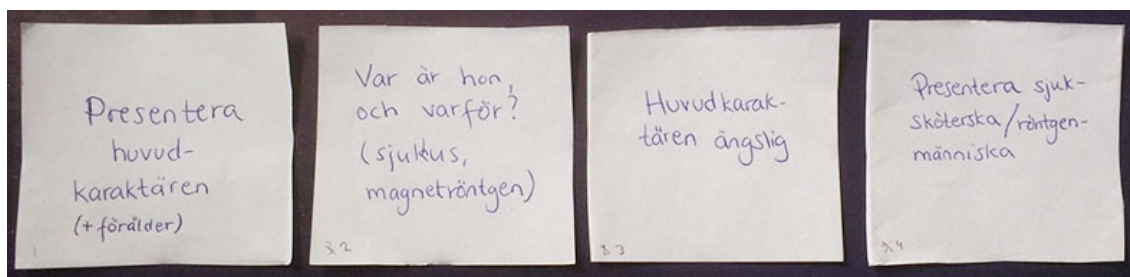 Presentera
huvud-
karaktären
(+ förälder)
1
Var är hon,
och varför?
(sjukus,
magnetröntgen)
2
Huvudkarak-
tären ängslig
3
Presentera sjuk-
sköterska/röntgen-
människa
4